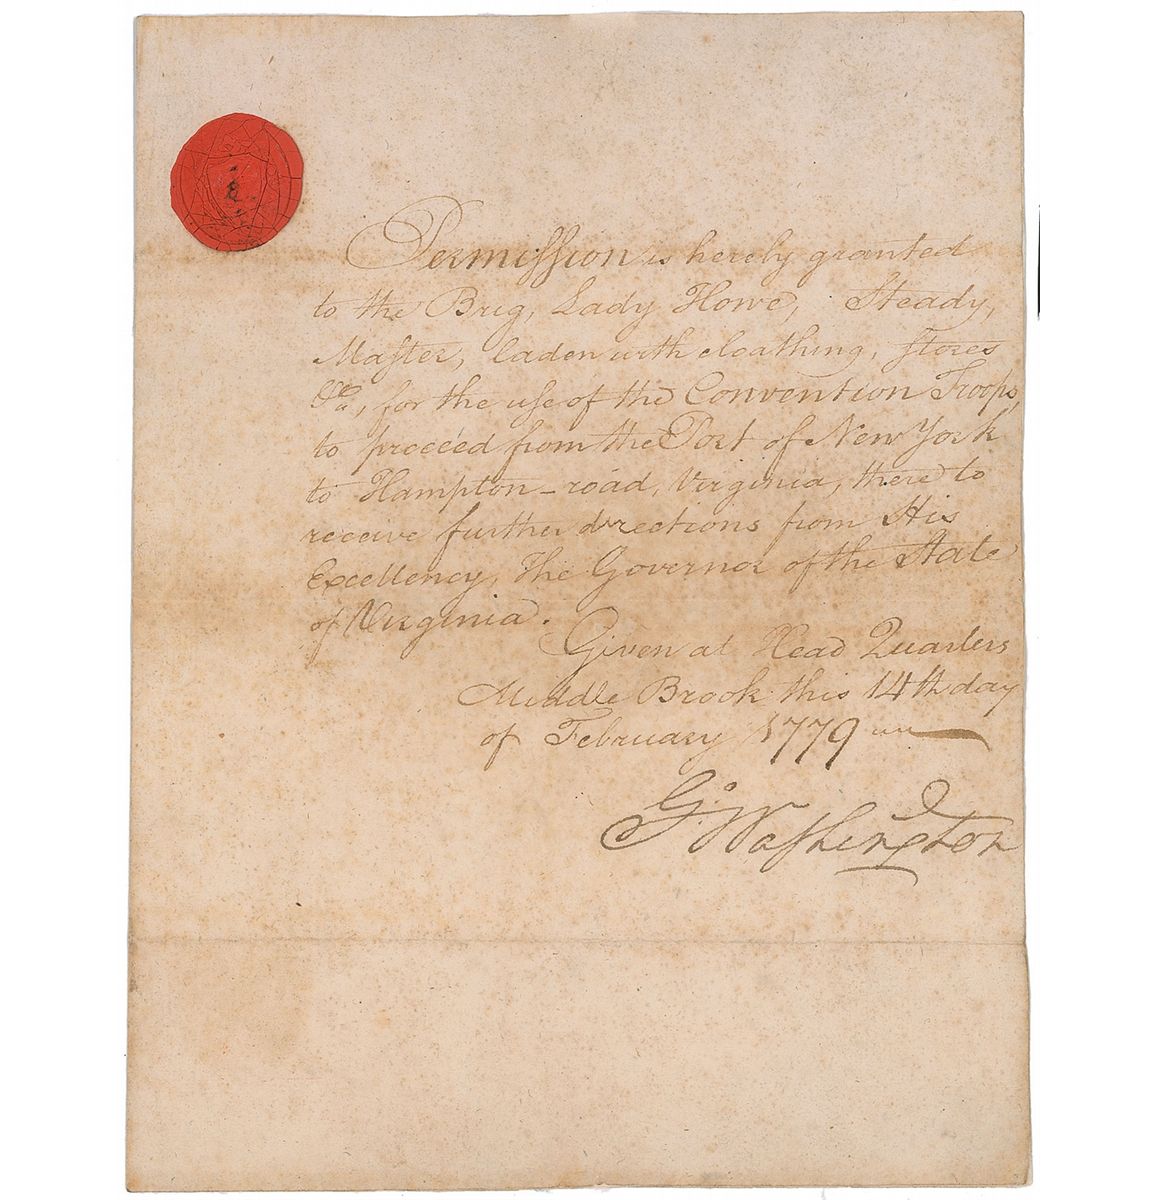 Permission is hereby granted
to the Brig, Lady Howe, Steady,
Master, laden with cloathing, stores
&ca, for the use of the Convention Troops,
to proceed from the Port of New York
to Hampton-road, Virginia, there to
receive further directions from His
Excellency, The Governor of the State
of Virginia.
Given at Head Quarters
Middle Brook this 14th day
of February 1779
Go: Washington